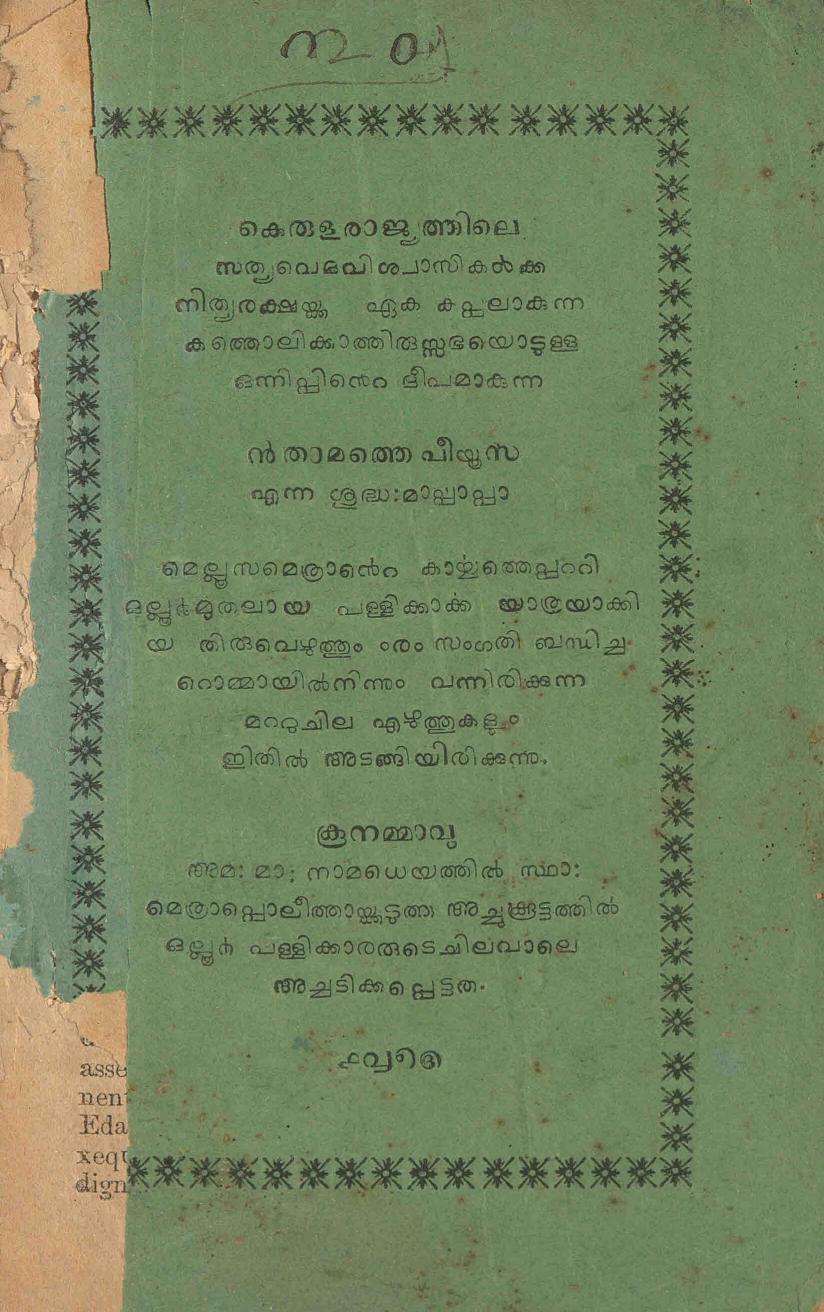 കെരുളരാജ്യത്തിലെ
സത്യവെദവിശ്വാസികൾക്ക
നിത്യരക്ഷയ്ക്കു ഏക കപ്പലാകുന്ന
കത്തൊലിക്കാത്തിരുസ്സഭയൊടുള്ള
ഒന്നിപ്പിൻെറ ദീപമാകുന്ന
ൻ താമത്തെ പീയൂസ
എന്ന ശുദ്ധ:മാപ്പാപ്പാ
മെല്ലൂസമെത്രാൻെറ കാൎയ്യത്തെപ്പററി
ഒല്ലൂർമുതലായ പള്ളിക്കാൎക്ക യാത്രയാക്കി
യ തിരുവെഴുത്തും ൟ സംഗതി ബന്ധിച്ച
റൊമ്മായിൽനിന്നും വന്നിരിക്കുന്ന
മററുചില എഴുത്തുകളും
ഇതിൽ അടങ്ങിയിരിക്കുന്നു.
കൂനമ്മാവു
അമ: മാ: നാമധെയത്തിൽ സ്ഥാ:
മെത്രാപ്പൊലീത്തായ്ക്കടുത്ത അച്ചുക്കൂട്ടത്തിൽ
ഒല്ലൂർ പള്ളിക്കാരരുടെചിലവാലെ
അച്ചടിക്കപ്പെട്ടത.
൧൮൭൫
asse
nen
Eda
xequ
dign